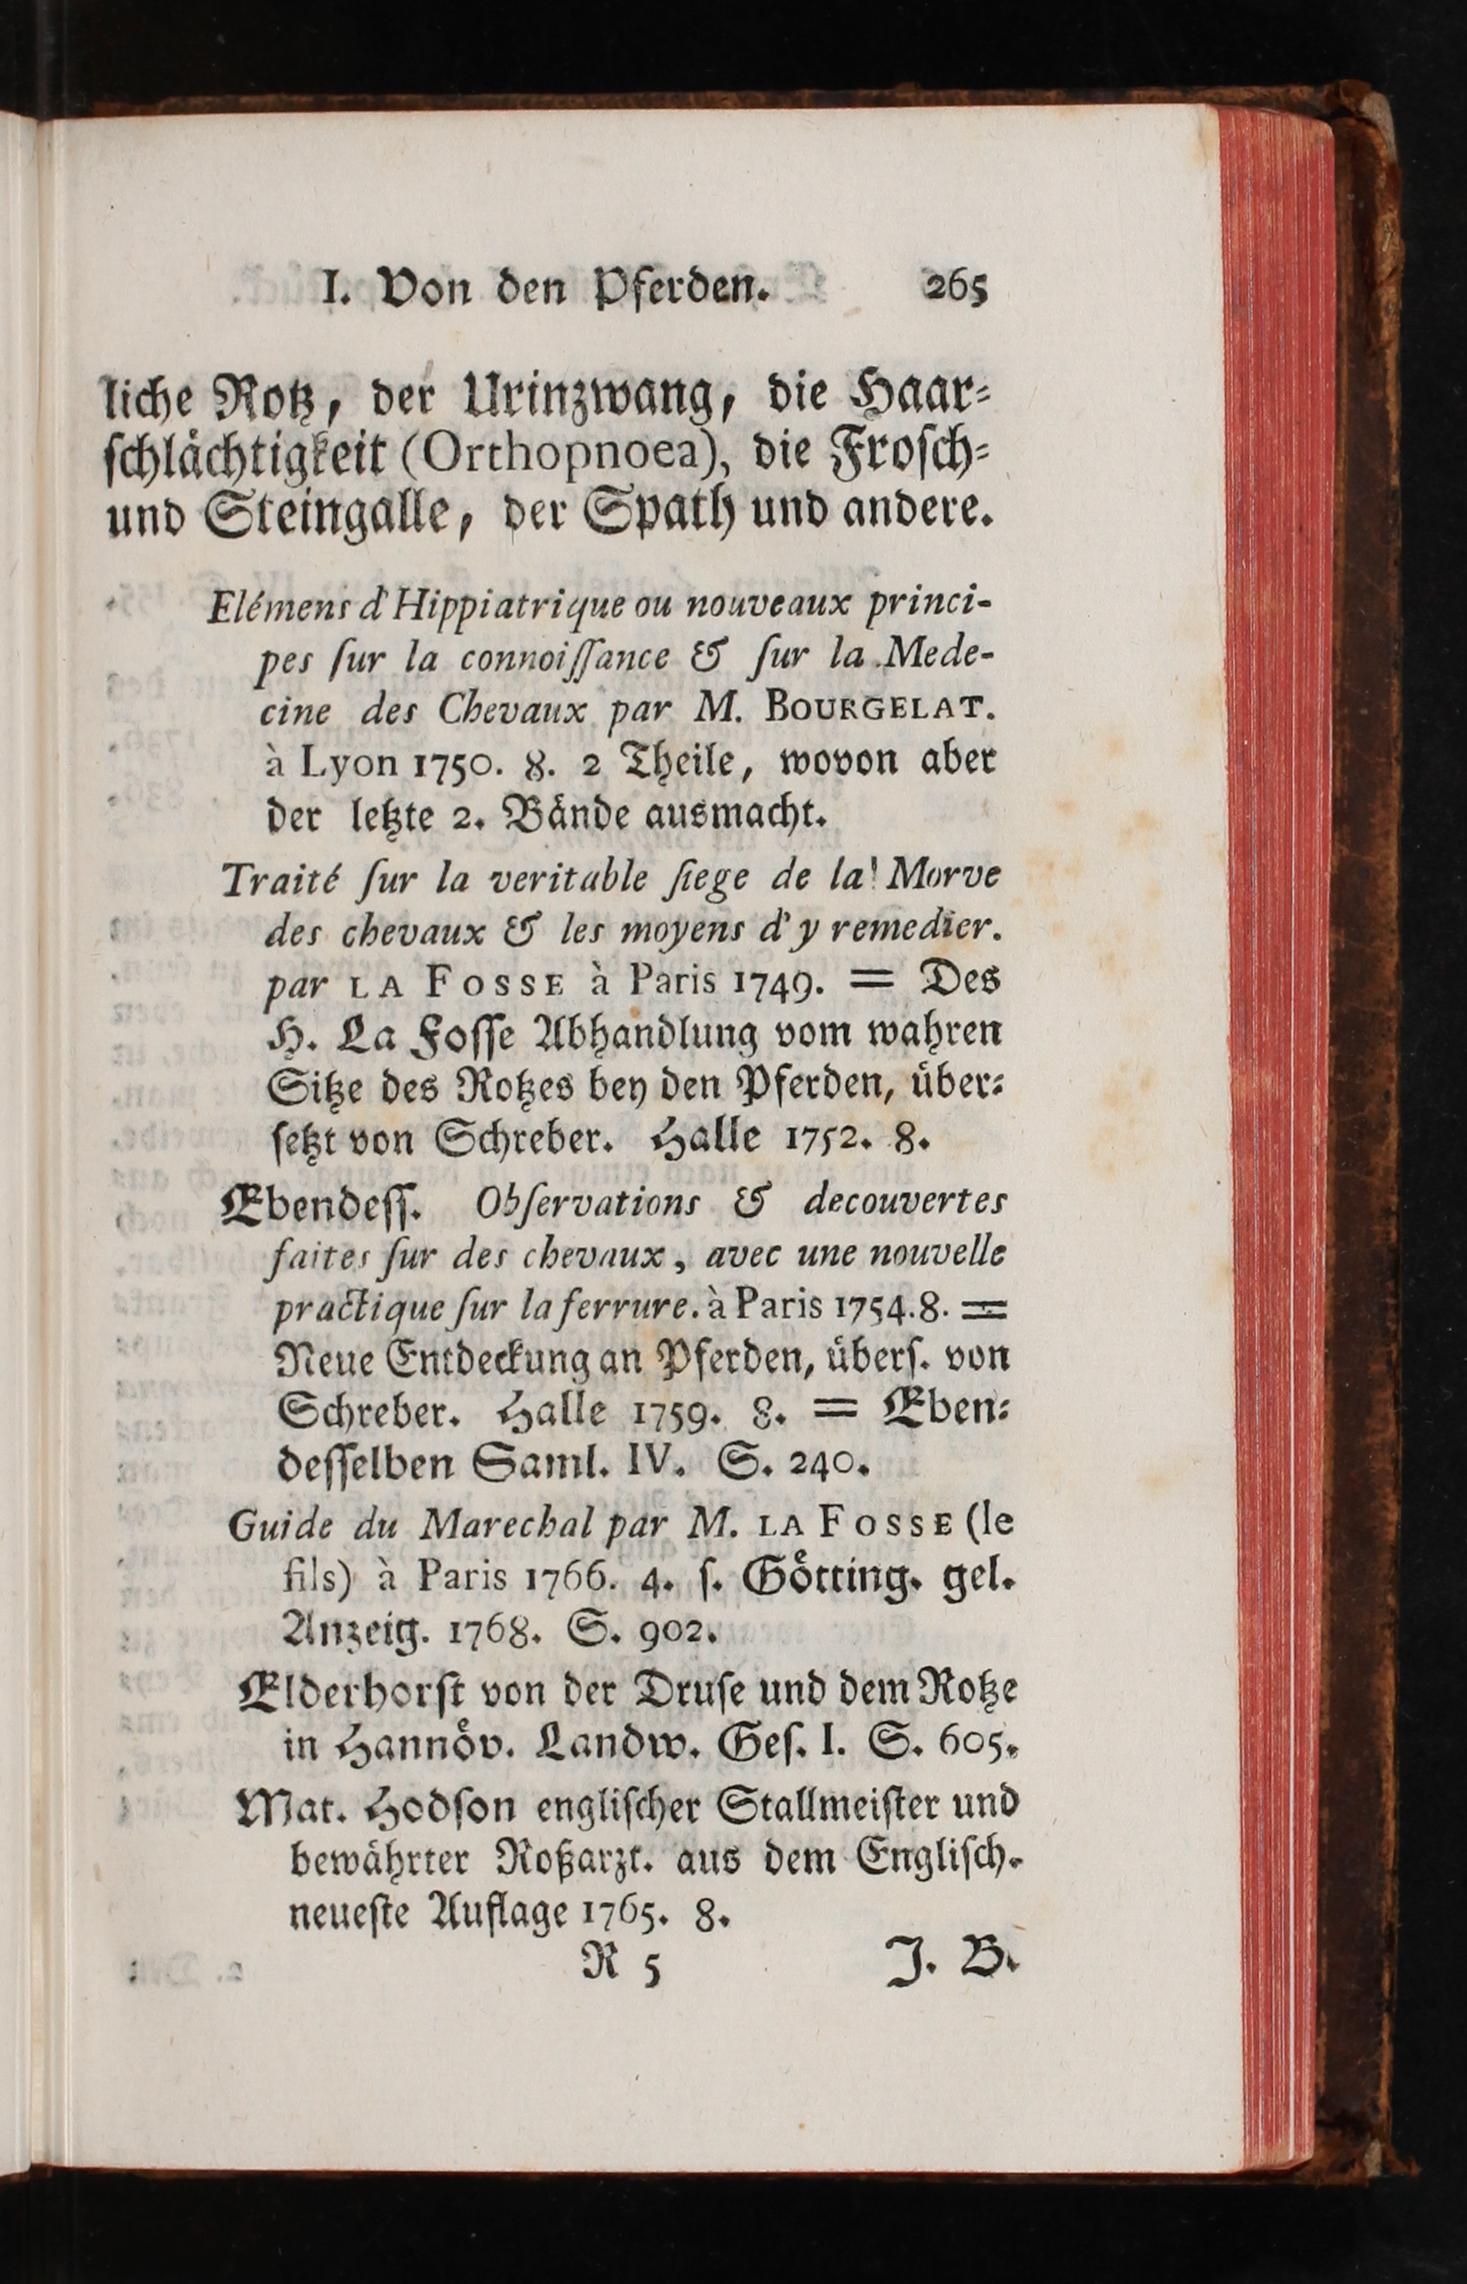 I. Von den Pferden. 265
liche Rotz, der Urinzwang, die Haar⸗
ſchlaͤchtigkeit (Orthopnoea), die Froſch⸗
und Steingalle, der Spath und andere.
Elémens d'Hippiatrique ou nouveaux princi-
pes ſur la connoiſſance & ſur la Mede-
cine des Chevaux par M. BOURGELAT.
à Lyon 1750. 8. 2 Theile, wovon aber
der letzte 2. Baͤnde ausmacht.
Traité ſur la veritable ſiege de la' Morve
des chevaux & les moyens d'y remedier.
par LA FOSSE à Paris 1749. = Des
H. La Foſſe Abhandlung vom wahren
Sitze des Rotzes bey den Pferden, uͤber⸗
ſetzt von Schreber. Halle 1752. 8.
Ebendeſſ. Obſervations & decouvertes
faites ſur des chevaux, avec une nouvelle
practique ſur la ferrure. à Paris 1754.8. =
Neue Entdeckung an Pferden, uͤberſ. von
Schreber. Halle 1759. 8. = Eben⸗
deſſelben Saml. IV. S. 240.
Guide du Marechal par M. LA FOSSE (le
fils) à Paris 1766. 4. ſ. Goͤtting. gel.
Anzeig. 1768. S. 902.
Elderhorſt von der Druſe und dem Rotze
in Hannoͤv. Landw. Geſ. I. S. 605.
Mat. Hodſon engliſcher Stallmeiſter und
bewaͤhrter Roßarzt. aus dem Engliſch.
neueſte Auflage 1765. 8.
R 5 J. B.